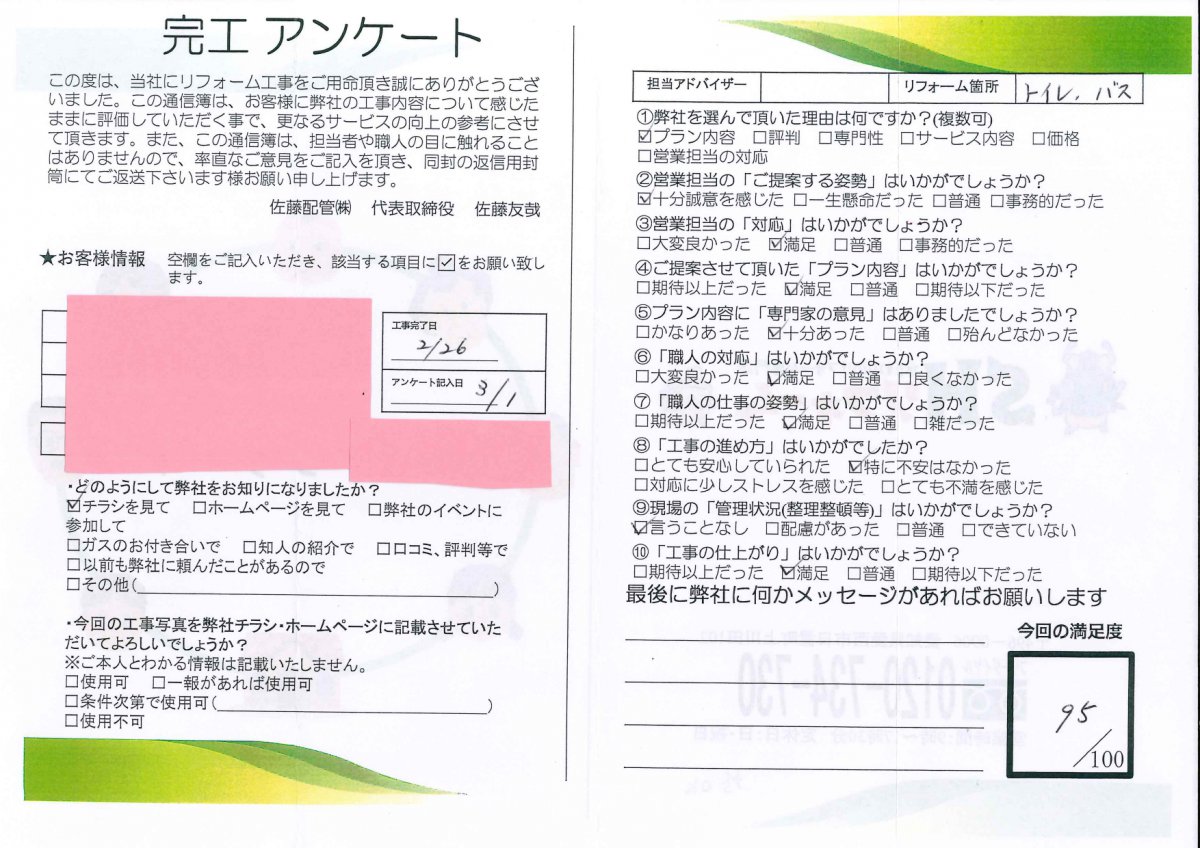 完工 アンケート
この度は、当社にリフォーム工事をご用命頂き誠にありがとうござ
いました。この通信簿は、お客様に弊社の工事内容について感じた
ままに評価していただく事で、更なるサービスの向上の参考にさせ
て頂きます。また、この通信簿は、担当者や職人の目に触れること
はありませんので、率直なご意見をご記入を頂き、同封の返信用封
筒にてご返送下さいます様お願い申し上げます。
佐藤配管㈱ 代表取締役 佐藤友哉
★お客様情報 空欄をご記入いただき、該当する項目に☑をお願い致し
ます。
工事完了日
2/26
アンケート記入日
3/1
・どのようにして弊社をお知りになりましたか？
☑チラシを見て □ホームページを見て □弊社のイベントに
参加して
□ガスのお付き合いで □知人の紹介で □口コミ、評判等で
□以前も弊社に頼んだことがあるので
□その他( )
・今回の工事写真を弊社チラシ・ホームページに記載させていた
だいてよろしいでしょうか？
※ご本人とわかる情報は記載いたしません。
□使用可 □一報があれば使用可
□条件次第で使用可( )
□使用不可
担当アドバイザー リフォーム箇所 トイレ、バス
①弊社を選んで頂いた理由は何ですか？(複数可)
☑プラン内容 □評判 □専門性 □サービス内容 □価格
□営業担当の対応
②営業担当の「ご提案する姿勢」はいかがでしょうか？
☑十分誠意を感じた □一生懸命だった □普通 □事務的だった
③営業担当の「対応」はいかがでしょうか？
□大変良かった ☑満足 □普通 □事務的だった
④ご提案させて頂いた「プラン内容」はいかがでしょうか？
□期待以上だった ☑満足 □普通 □期待以下だった
⑤プラン内容に「専門家の意見」はありましたでしょうか？
□かなりあった ☑十分あった □普通 □殆んどなかった
⑥「職人の対応」はいかがでしょうか？
□大変良かった ☑満足 □普通 □良くなかった
⑦「職人の仕事の姿勢」はいかがでしょうか？
□期待以上だった ☑満足 □普通 □雑だった
⑧「工事の進め方」はいかがでしたか？
□とても安心していられた ☑特に不安はなかった
□対応に少しストレスを感じた □とても不満を感じた
⑨現場の「管理状況(整理整頓等)」はいかがでしょうか？
☑言うことなし □配慮があった □普通 □できていない
⑩「工事の仕上がり」はいかがでしょうか？
□期待以上だった ☑満足 □普通 □期待以下だった
最後に弊社に何かメッセージがあればお願いします
今回の満足度
95
/100